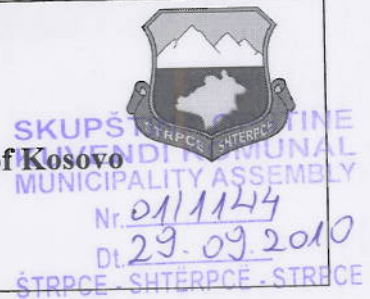 ŠTRPCE SHTERPCË
SKUPŠTINA OPŠTINE
of Kosovo
KUVENDI KOMUNAL
MUNICIPALITY ASSEMBLY
Nr. 01/1144
Dt. 29.09.2010
ŠTRPCE - SHTËRPCË - STRPCE